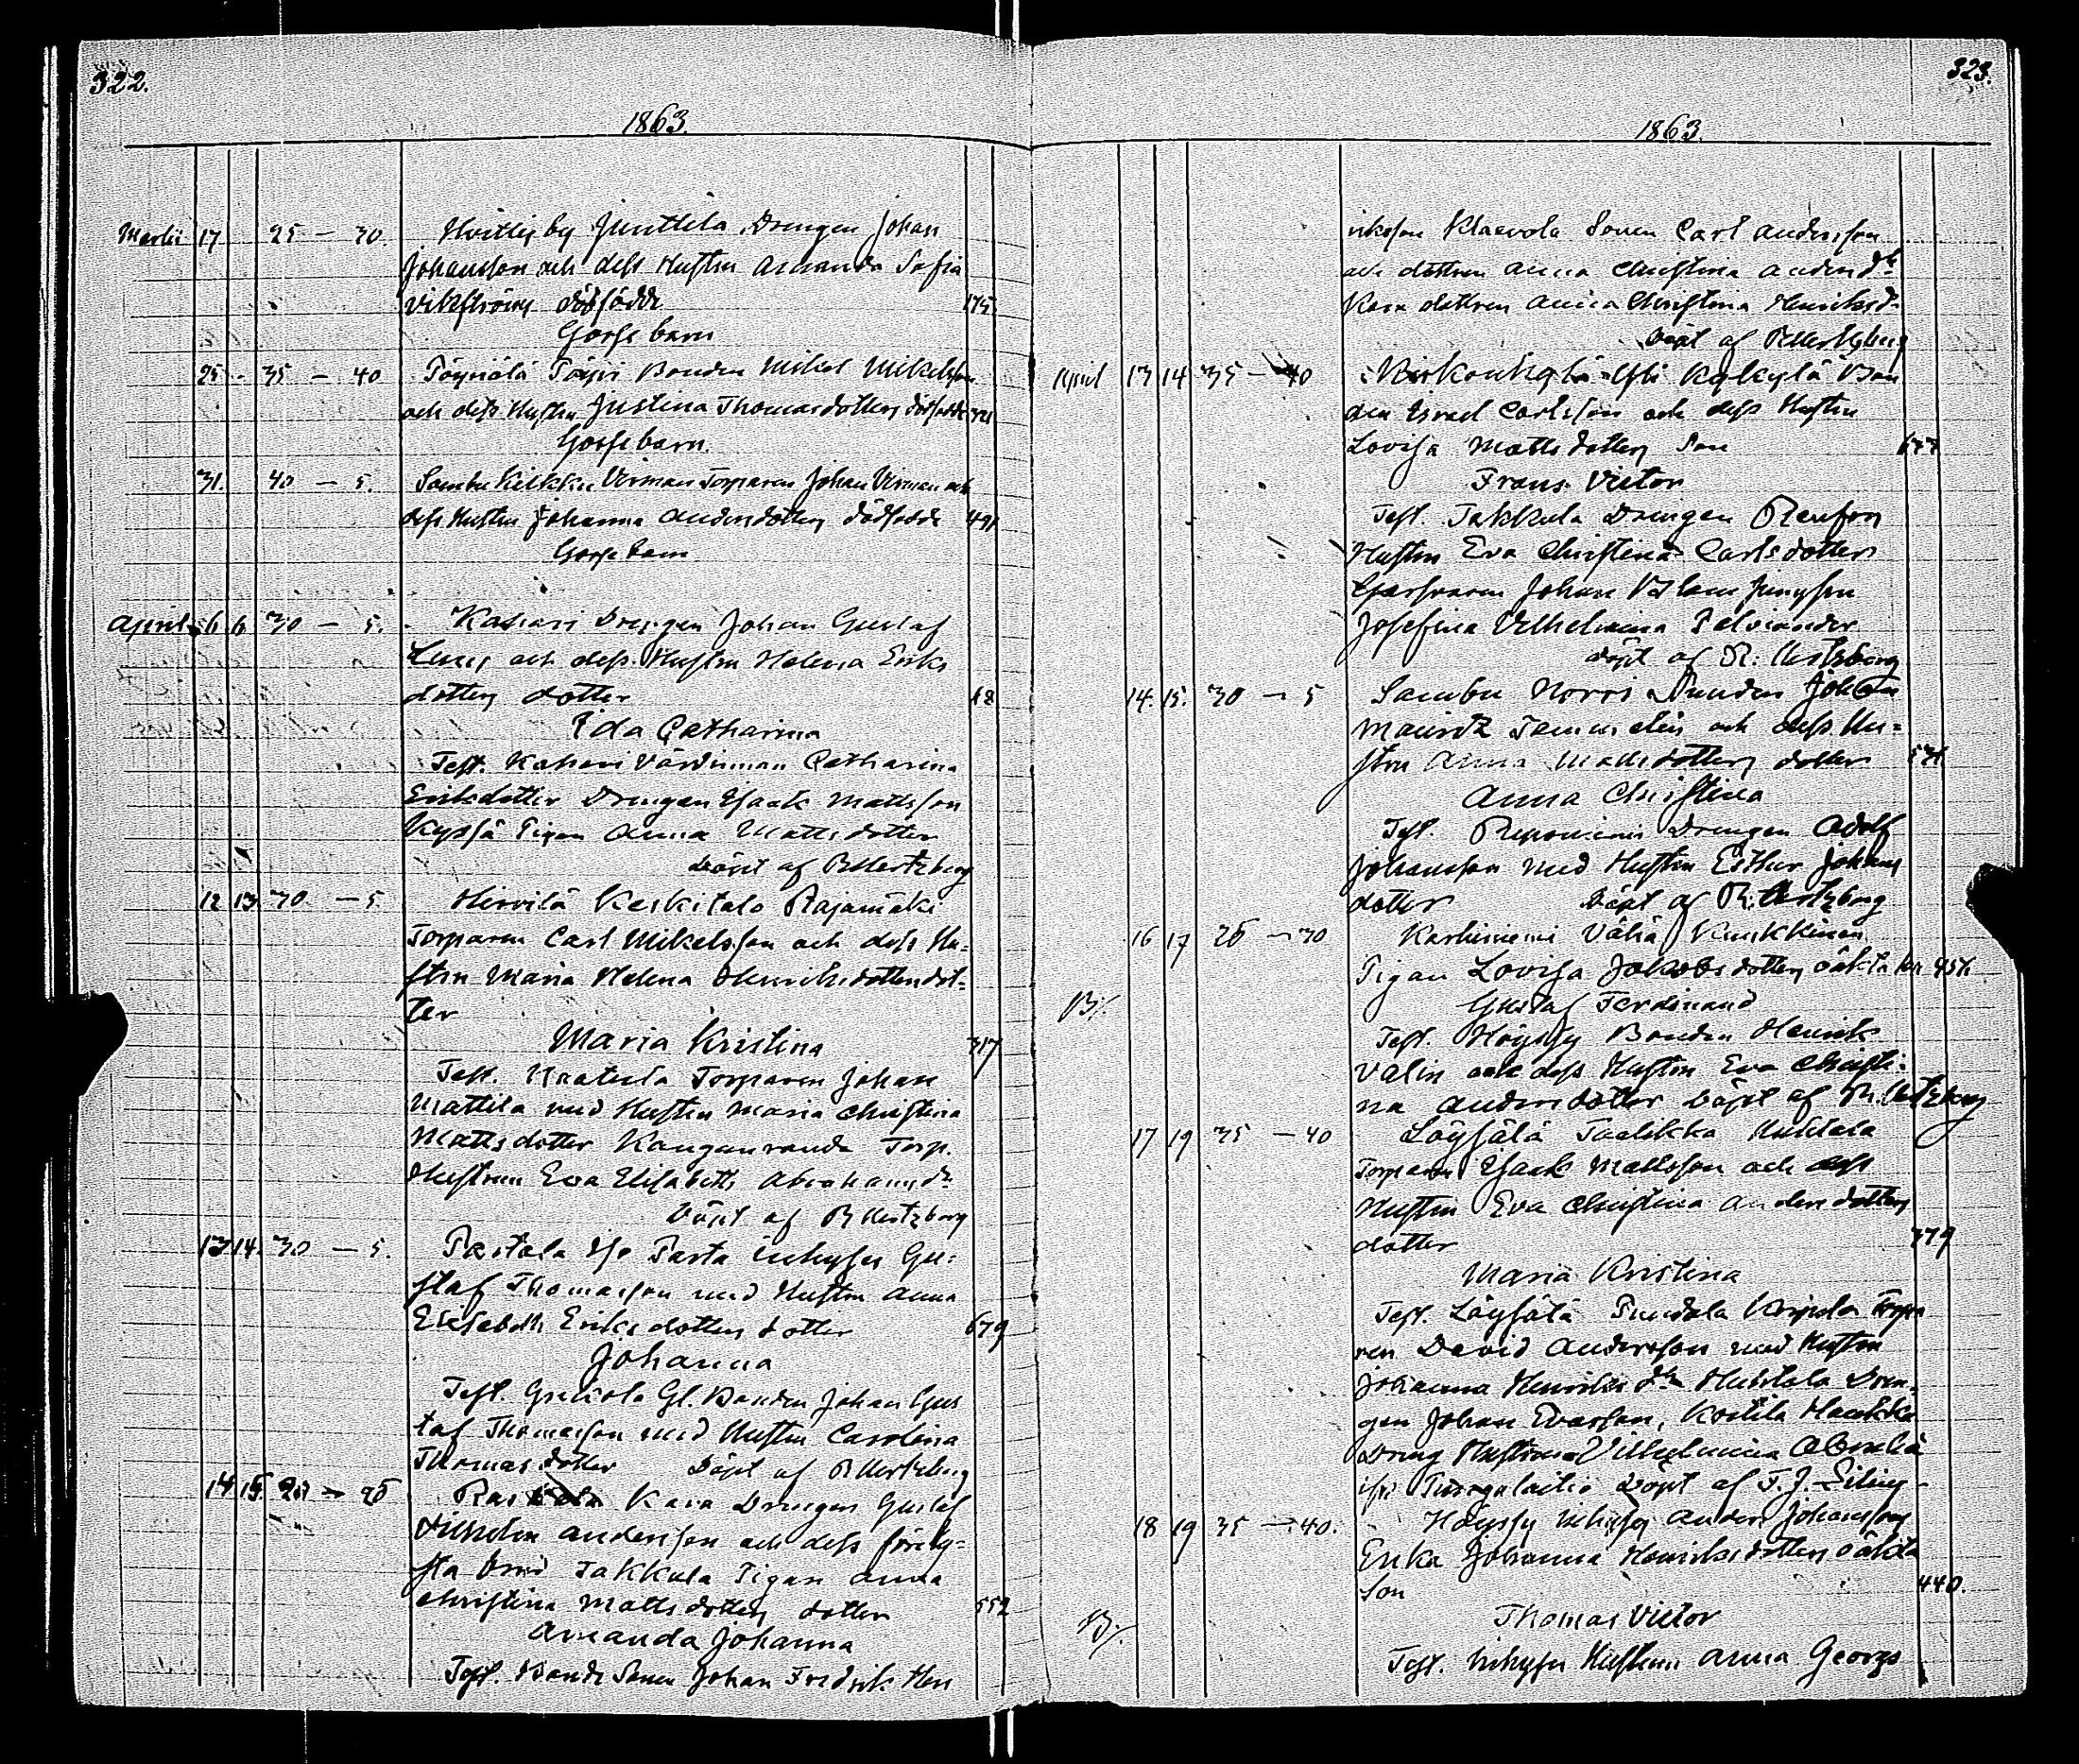 322.
1863.
Martii 17 25 — 30. by Junttila Drengen Johan
Johansson och dess Hustru Amanda Sofia
Vikströms dödfödde 175.
Gosse barn
25 - 35 — 40 Bonden Mikel Mikelsson
och dess Hustru Justina Thomasdotters dödfödde 321
Gosse barn.
31. 40 — 5. Sambu Kilkku Torparen Johan och
dess Hustru Johanna Andersdotters dödfödde 491
Gosse barn
April 6 6 30 — 5. Kahari Drengen Johan Gustaf
och dess Hustru Helena Eriks
dotters dotter 18
Ida Catharina
Test. Kahari Värdinnan Catharina
Eriksdotter Drengen Isaak Mattsson
Pigan Anna Mattsdotter
Döpt af R Hertzberg
12 13. 30 — 5 Hirvilä Keskitalo Rajamäki
Torparen Carl Mikelsson och dess Hu=
stru Maria Helena Henriksdotters dot=
ter
Maria Kristina 317
Test. Torparen Johan
Mattila med Hustru Maria Christina
Mattsdotter Kangunranda Torp.
Hustrun Eva Elisabeth Abrahamsdr
Döpt af R Hertzberg
13 14. 30 — 5. Partola Iso Parta inhyses Gu=
staf Thomasson med Hustru Anna
Elisabeth Eriksdotters dotter 679
Johanna
Test. Gl. Bonden Johan Gus
taf Thomasson med Hustru Carolina
Thomasdotter Döpt af R Hertzberg
14 15. 20 — 25 Kara Drengen Gustaf
Vilhelm Andersson och dess förlof=
sta brud Jakkula Pigan Anna
Christina Mattsdotters dotter 552
Amanda Johanna
Test. Bonde Sonen Johan Fredrik Hen
323.
1863.
riksson Klaavola Sonen Carl Andersson
och dottren Anna Christina Andersdr
Kara dottren Anna Christina Henriksdr
Döpt af R Hertzberg
April 13 14 35 — 40 Yli Kykylä Bon
den Israel Carlsson och dess Hustru
Lovisa Mattsdotters Son 677
Frans Victor
Test. Jakkula Drengen
Hustru Eva Christina Carlsdotter
Garfvaren Johan Jungfru
Josefina Vilhelmina Palviander
Döpt af R. Hertzberg
14. 15. 30 — 5 Sambu Norri Bonden Johan
Mauritz Tammelin och dess Hu=
stru Anna Mattsdotters dotter
Anna Christina
Test. Reponiemi Drengen Adolf
Johansson med Hustru Esther Johans
dotter Döpt af R. Hertzberg
16 17 25 — 30 Karhiniemi Vähä
Pigan Lovisa Jakobsdotters oäkta
B/. Gustaf Ferdinand
Test. Höyssy Bonden Henrik
Valin och dess Hustru Eva Christi=
na Andersdotter Döpt af R. Hertzberg
17 19 35 — 40 Löysälä Taalikka Huhtala
Torparen Isaak Mattsson och dess
Hustru Eva Christina Andersdotters
dotter 379
Maria Kristina
Test. Löysälä Torpa
ren David Andersson med Hustru
Johanna Henriksdr Huhtala Dren=
gen Johan Evasson, Kostila Haukka
Dreng Hustrun Vilhelmina
Döpt af F. J.
18 19 35 — 40. Höyssy inhyses Anders Johansson
Erika Johanna Henriksdotters oäkta
Son 440.
B/. Thomas Victor
Test. inhyses Hustrun Anna Georgs